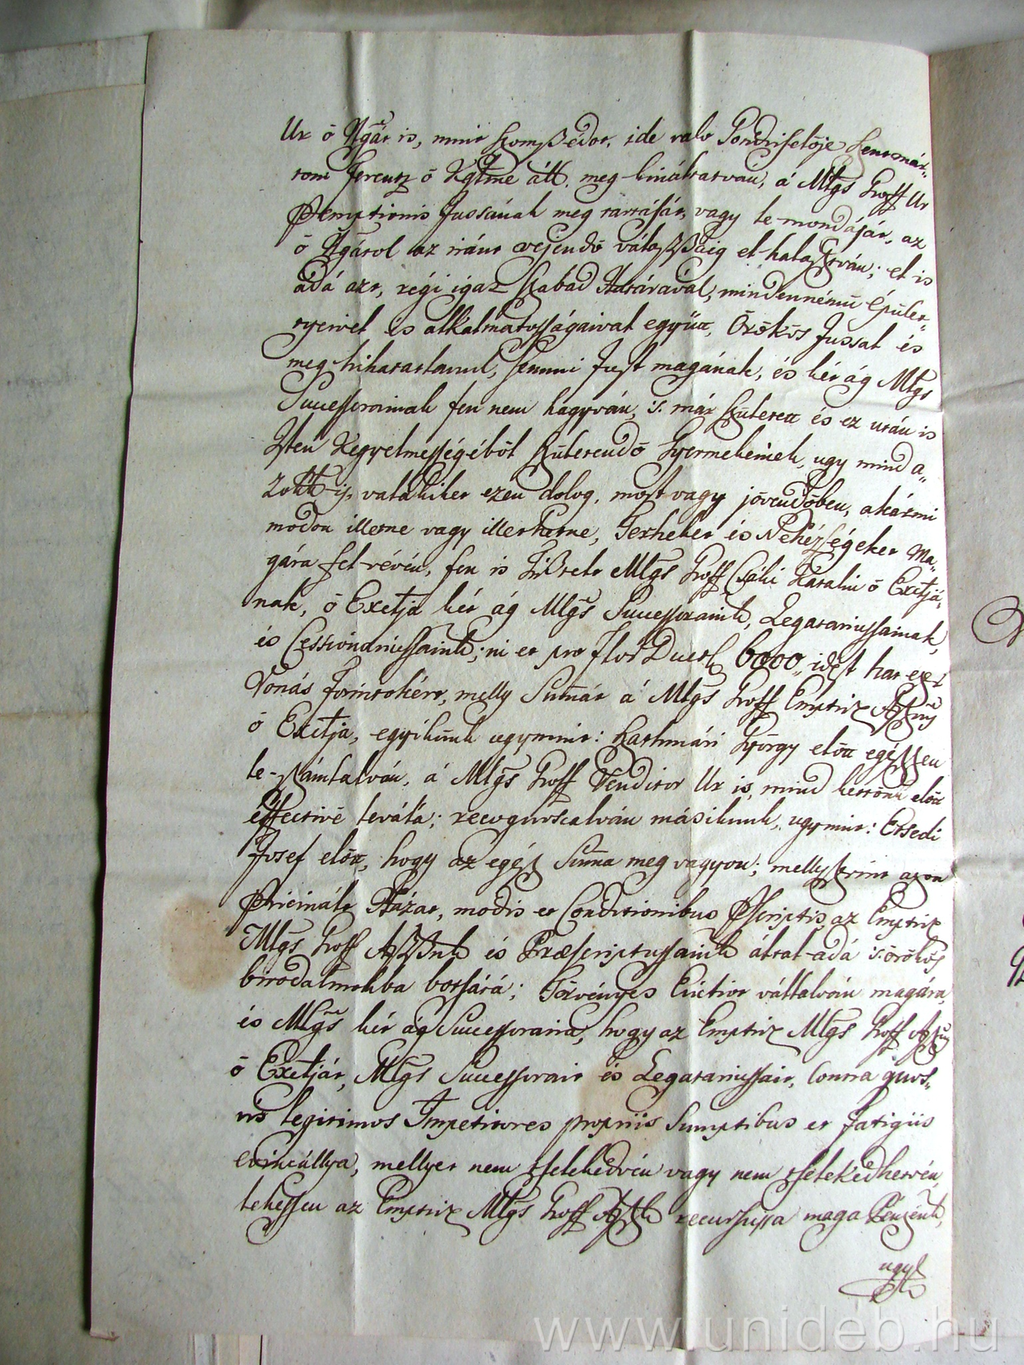 Ur ő Nga is, mint szomszédos, ide való
tom Ferentz ő Kglme ált. meg-kináltatván, á Mlgs Groff Ur
Jussának meg tartását, vagy le-mondását, az
ő Ngától az iránt vejendő válaszszáig el-halasztván; el is
adá azt, régi igaz szabad Határával, mindennémű épület-
nyeivel és alkalmatosságaival együtt, Örökös Jussal és
meg-hihatatlanul, semmi Just magának, és két ág Mlgs
Successorainak fen nem hagyván, 's már születet és ez után is
Isten Kegyelmességéből születendő Gyermekeinek, ugy mind a-
zokk is, valakiket ezen dolog, most vagy jövendőben, akármi
módon illetne vagy illethetne, Terheket és Nehézségeket Ma-
gára fel-vévén, fen is Tisztelt Mlgs Groff Csáki Katalin ő Exltjá-
nak, ő Exltja két ág Mlgs Successorainak, Legatariussainak,
és Cessionariussaink; in et pro flor 6000, idest hat ezer
Vonás forintokért, melly Summát á Mlgs Groff Emptrix
ő Exltja, egyikünk ugymint: Kathmári György előtt egészszen
le-számlálván, á Mlgs Groff Venditor Ur is, mind kettőnk előtt
effective levála; recognoscalván másikunk, ugymint: Etsedi
Josef előtt, hogy az egész Summa meg vagyon; melly szerint azon
Házat, modis et Conditionibus az Emptrix
Mlgs Groff és által-adá 's örökös
birodalmokba botsátá; Törvényes Evictiot vállalván magára
és Mlgs két ág Successoraira, hogy az Emptrix Mlgs Groff
ő Exltját, Mlgs Successorait és Legatariussait, contra quos-
vis legitimos Impetitores propriis Sumptibus et fatigiis
evincállya, mellyet nem tselekedvén vagy nem tselekedhetvén,
lehessen az Emptrix Mlgs Groff recursussa maga Pénzének,
ugy
www.unideb.hu